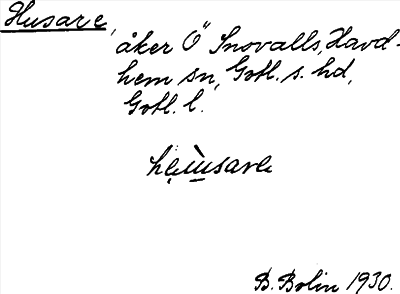 Husare,
åker Ö" Snovalls, Havd-
hem sn, Gotl. s. hd,
Gotl. l.
B. Bolin 1930.